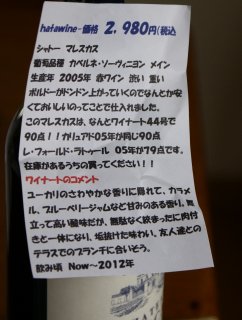 hatawine-価格 2.980円(税込
シャトー マレスカス
葡萄品種 カベルネ・ソーヴィニヨン メイン
生産年 2005年 赤ワイン 渋い 重い
ボルドーがドンドン上がっていくのでなんとか安
くておいしいのってことで仕入れました。
このマレスカスは、なんとワイナート44号で
90点!!ガリュアド05年が同じ90点
レ・フォールド・ラトゥール 05年が79点です。
在庫があるうちの買ってください!!
ワイナートのコメント
ユーカリのさわやかな香りに隠れて、カラメ
ル、ブルーベリージャムなど甘みのある香り。際
立って高い酸味だが、無駄なく絞まったに肉付
きと一体になり、垢抜けた味わい。友人達との
テラスでのブランチに合いそう。
飲み頃 Now～2012年